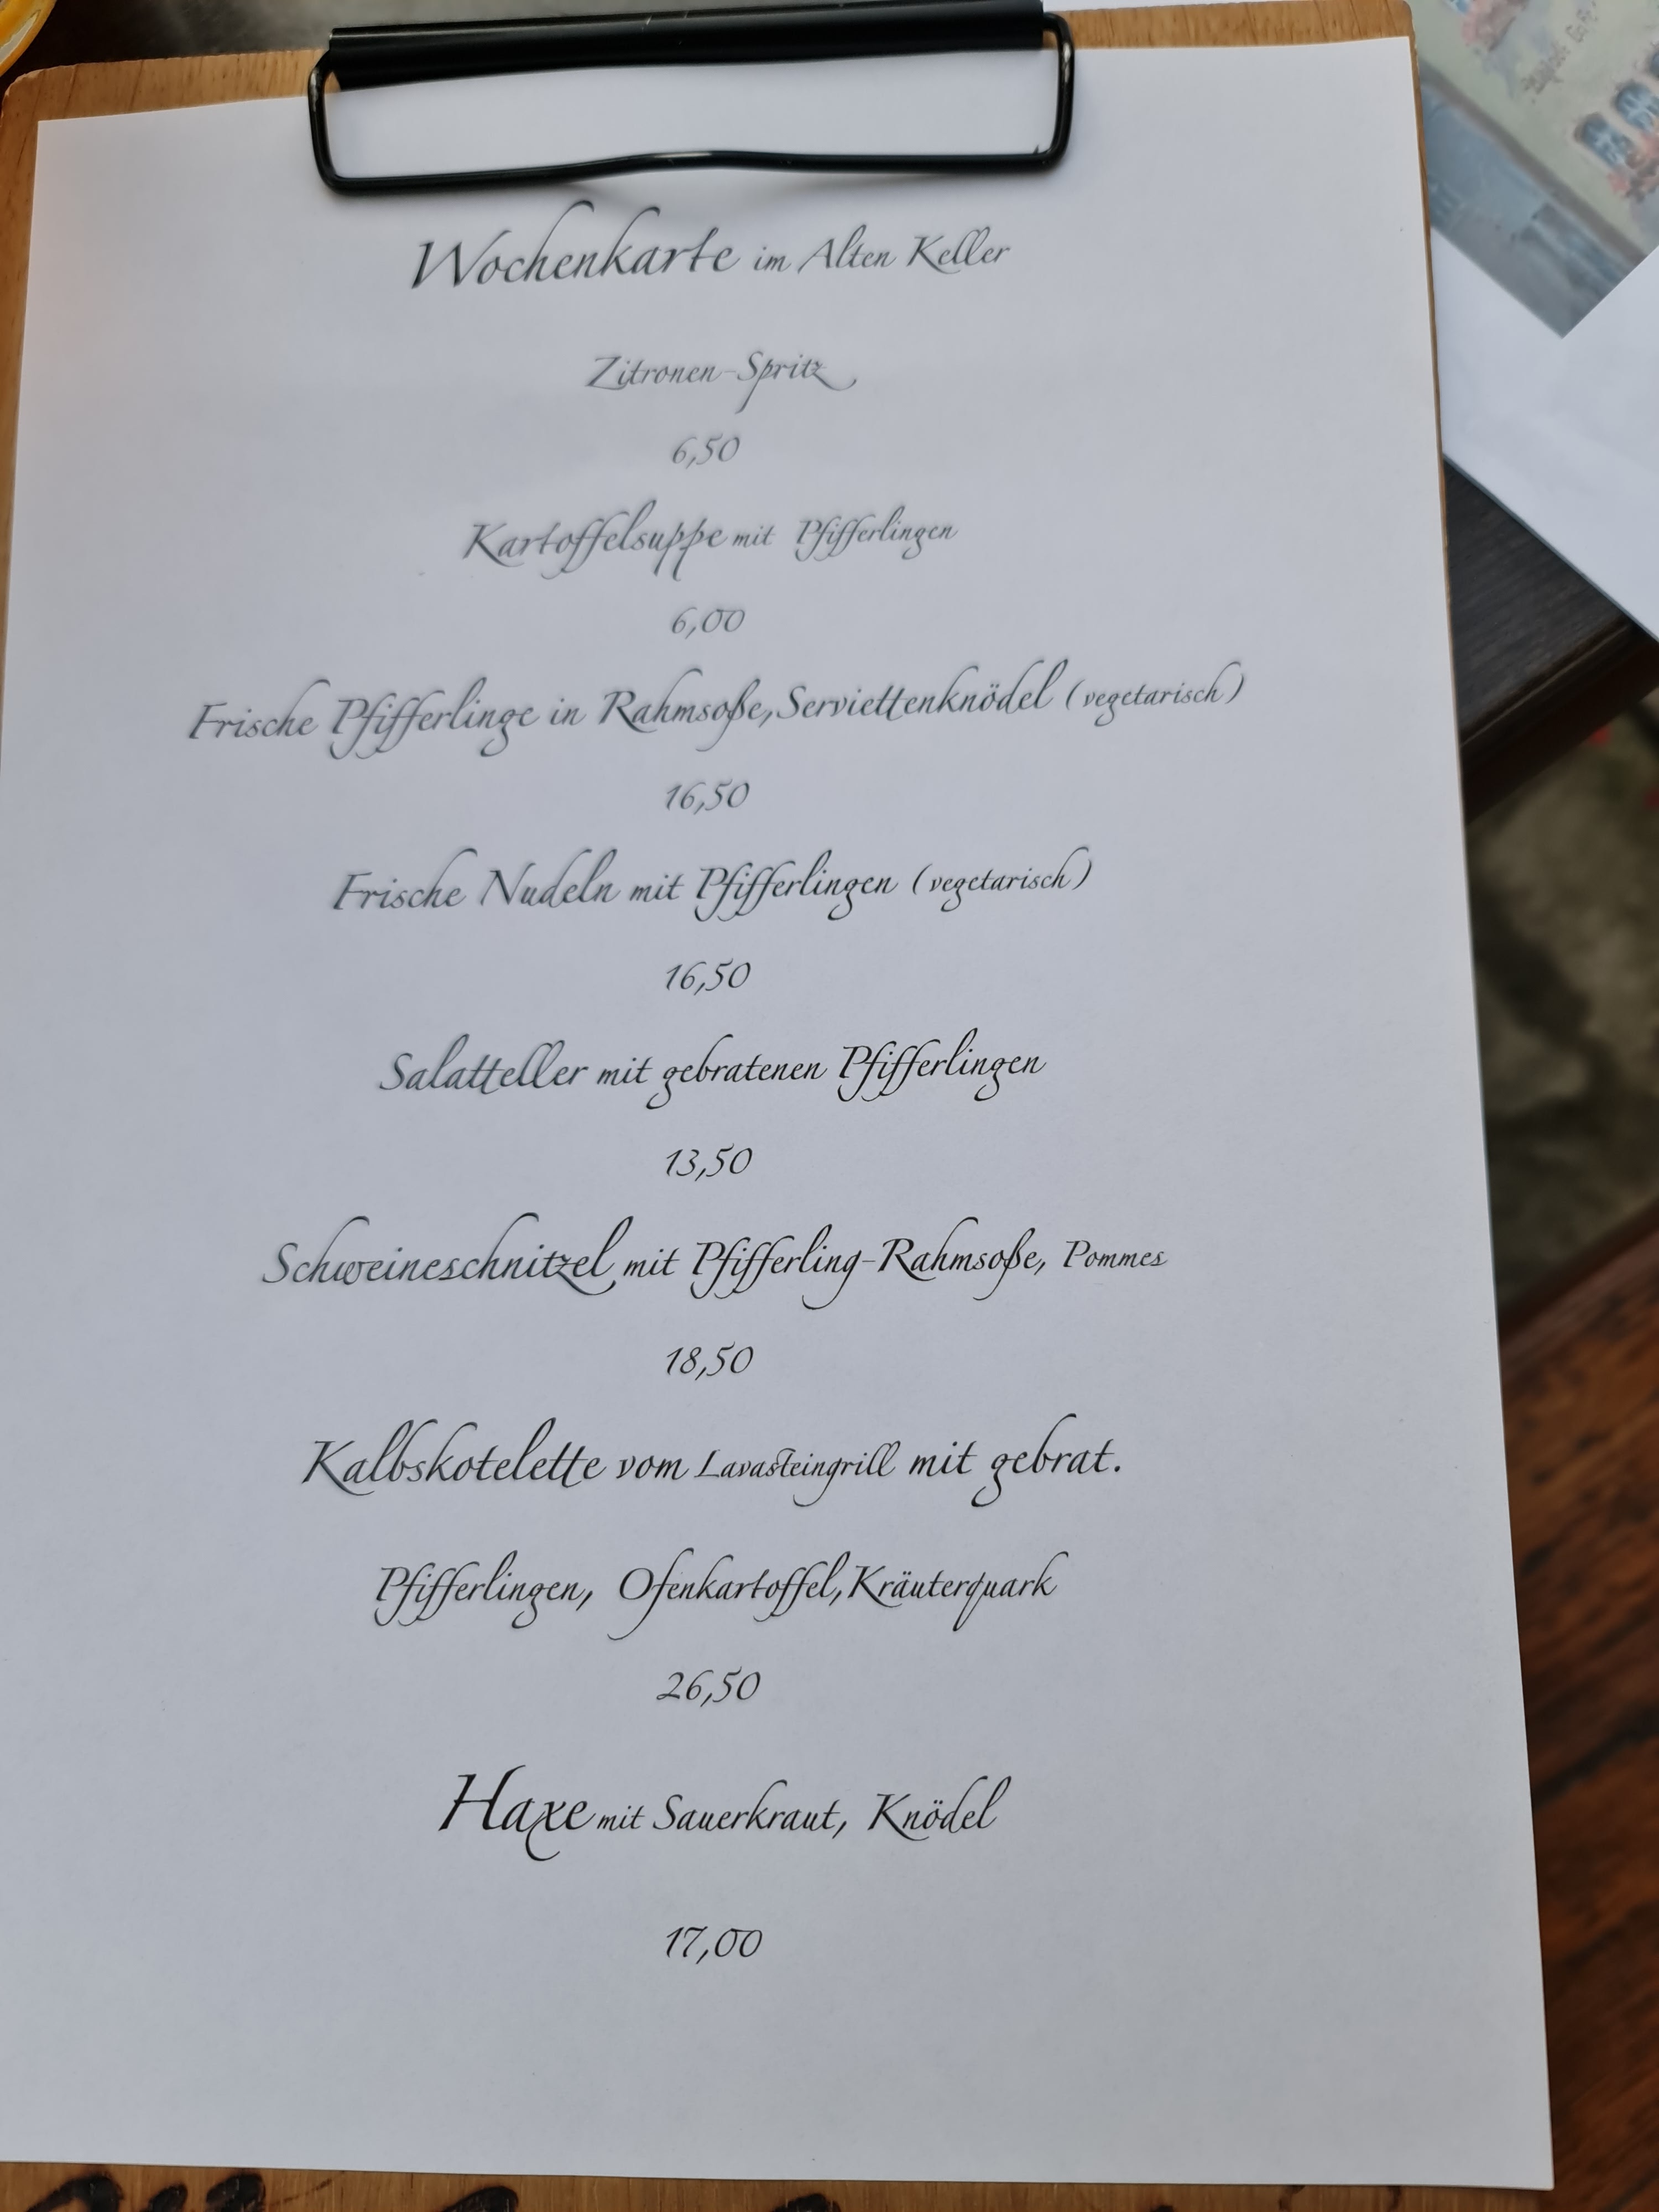 Wochenkarte im Alten Keller
Zitronen-Spritz
6,50
Kartoffelsuppe mit Pfifferlingen
6,00
Frische Pfifferlinge in Rahmsoße, Serviettenknödel (vegetarisch)
16,50
Frische Nudeln mit Pfifferlingen (vegetarisch)
16,50
Salatteller mit gebratenen Pfifferlingen
13,50
Schweineschnitzel mit Pfifferling-Rahmsoße, Pommes
18,50
Kalbskotelette vom Lavasteingrill mit gebrat.
Pfifferlingen, Ofenkartoffel, Kräuterquark
26,50
Haxe mit Sauerkraut, Knödel
17,00